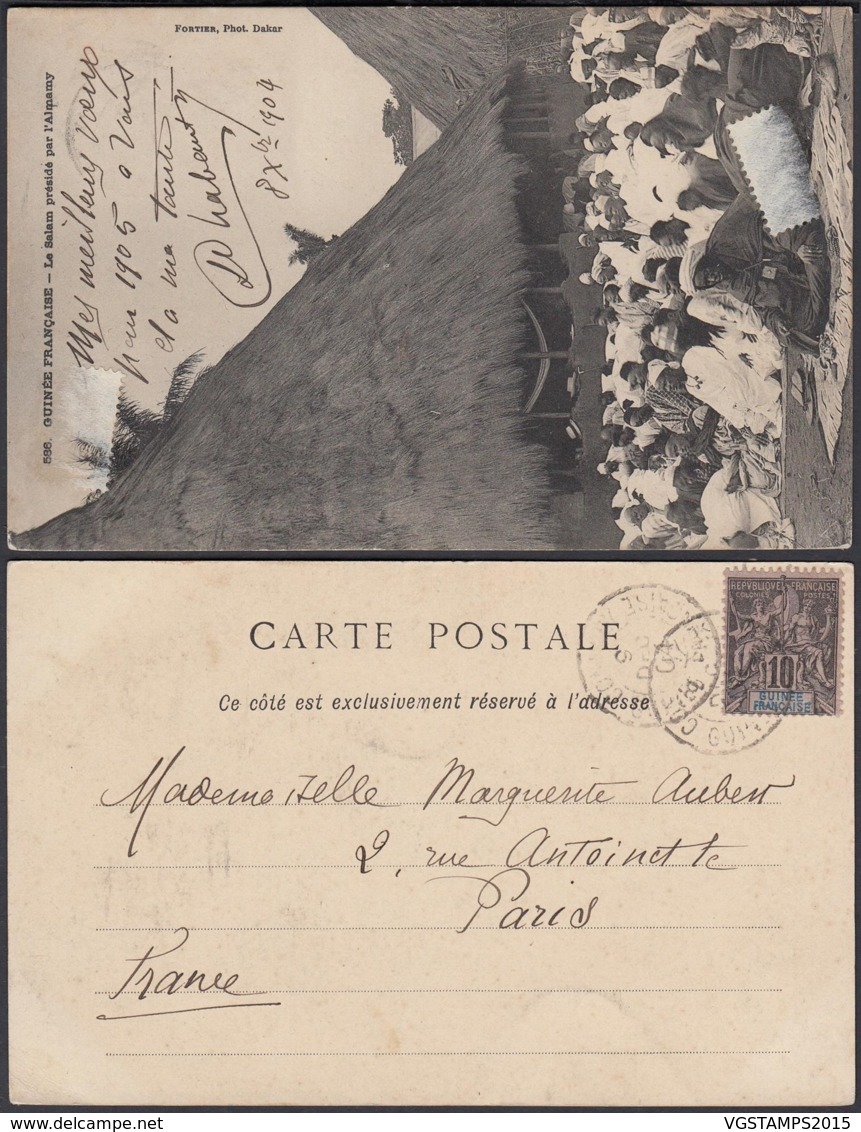 FORTIER, Phot. Dakar
586. GUINÉE FRANÇAISE — Le Salam présidé par l'Almamy
Mes meilleurs vœux
pour 1905 à vous
et a ma tante
8 Xbre 1904
CARTE POSTALE
Ce côté est exclusivement réservé à l'adresse
REPVBLIQVE FRANÇAISE
COLONIES POSTES
10
GUINÉE
FRANÇAISE
Mademoiselle Marguerite Aubert
2, rue Antoinette
Paris
France
VGSTAMPS2015